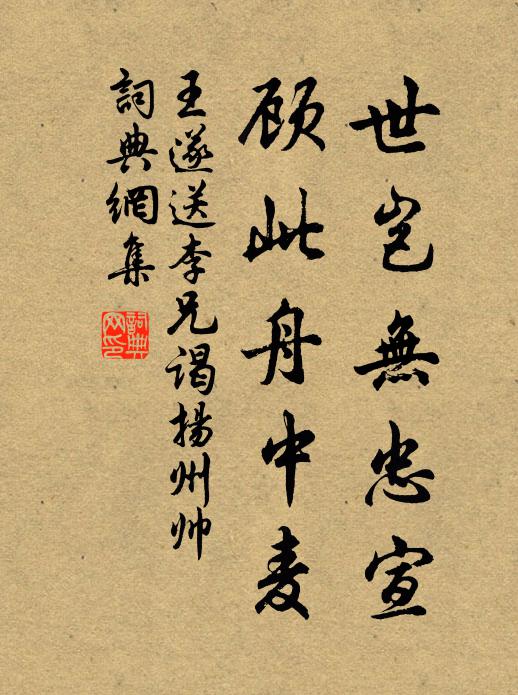 世岂無忠宣
顾此舟中麦
王遂送李兄谒揚州帅
詞典網集
詞典網印